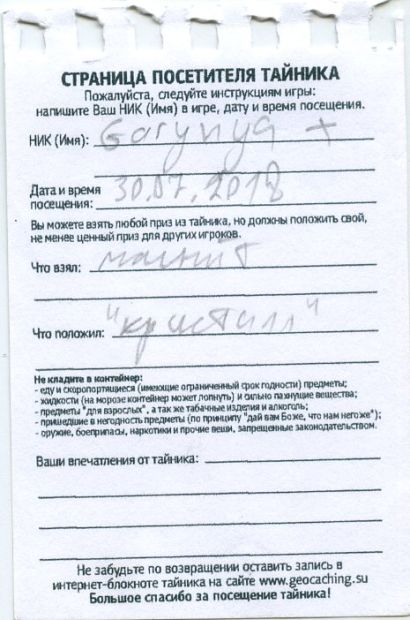 СТРАНИЦА ПОСЕТИТЕЛЯ ТАЙНИКА
Пожалуйста, следуйте инструкциям игры:
напишите Ваш НИК (Имя) в игре, дату и время посещения.
НИК (Имя): Gorynya +
Дата и время
посещения: 30.07.2018
Вы можете взять любой приз из тайника, но должны положить свой,
не менее ценный приз для других игроков.
Что взял: магнит
Что положил: "кристалл"
Не кладите в контейнер:
- еду и скоропортящиеся (имеющие ограниченный срок годности) предметы;
- жидкости (на морозе контейнер может лопнуть) и сильно пахнущие вещества;
- предметы "для взрослых", а так же табачные изделия и алкоголь;
- пришедшие в негодность предметы (по принципу "дай вам Боже, что нам негоже");
- оружие, боеприпасы, наркотики и прочие вещи, запрещенные законодательством.
Ваши впечатления от тайника:
Не забудьте по возвращении оставить запись в
интернет-блокноте тайника на сайте www.geocaching.su
Большое спасибо за посещение тайника!